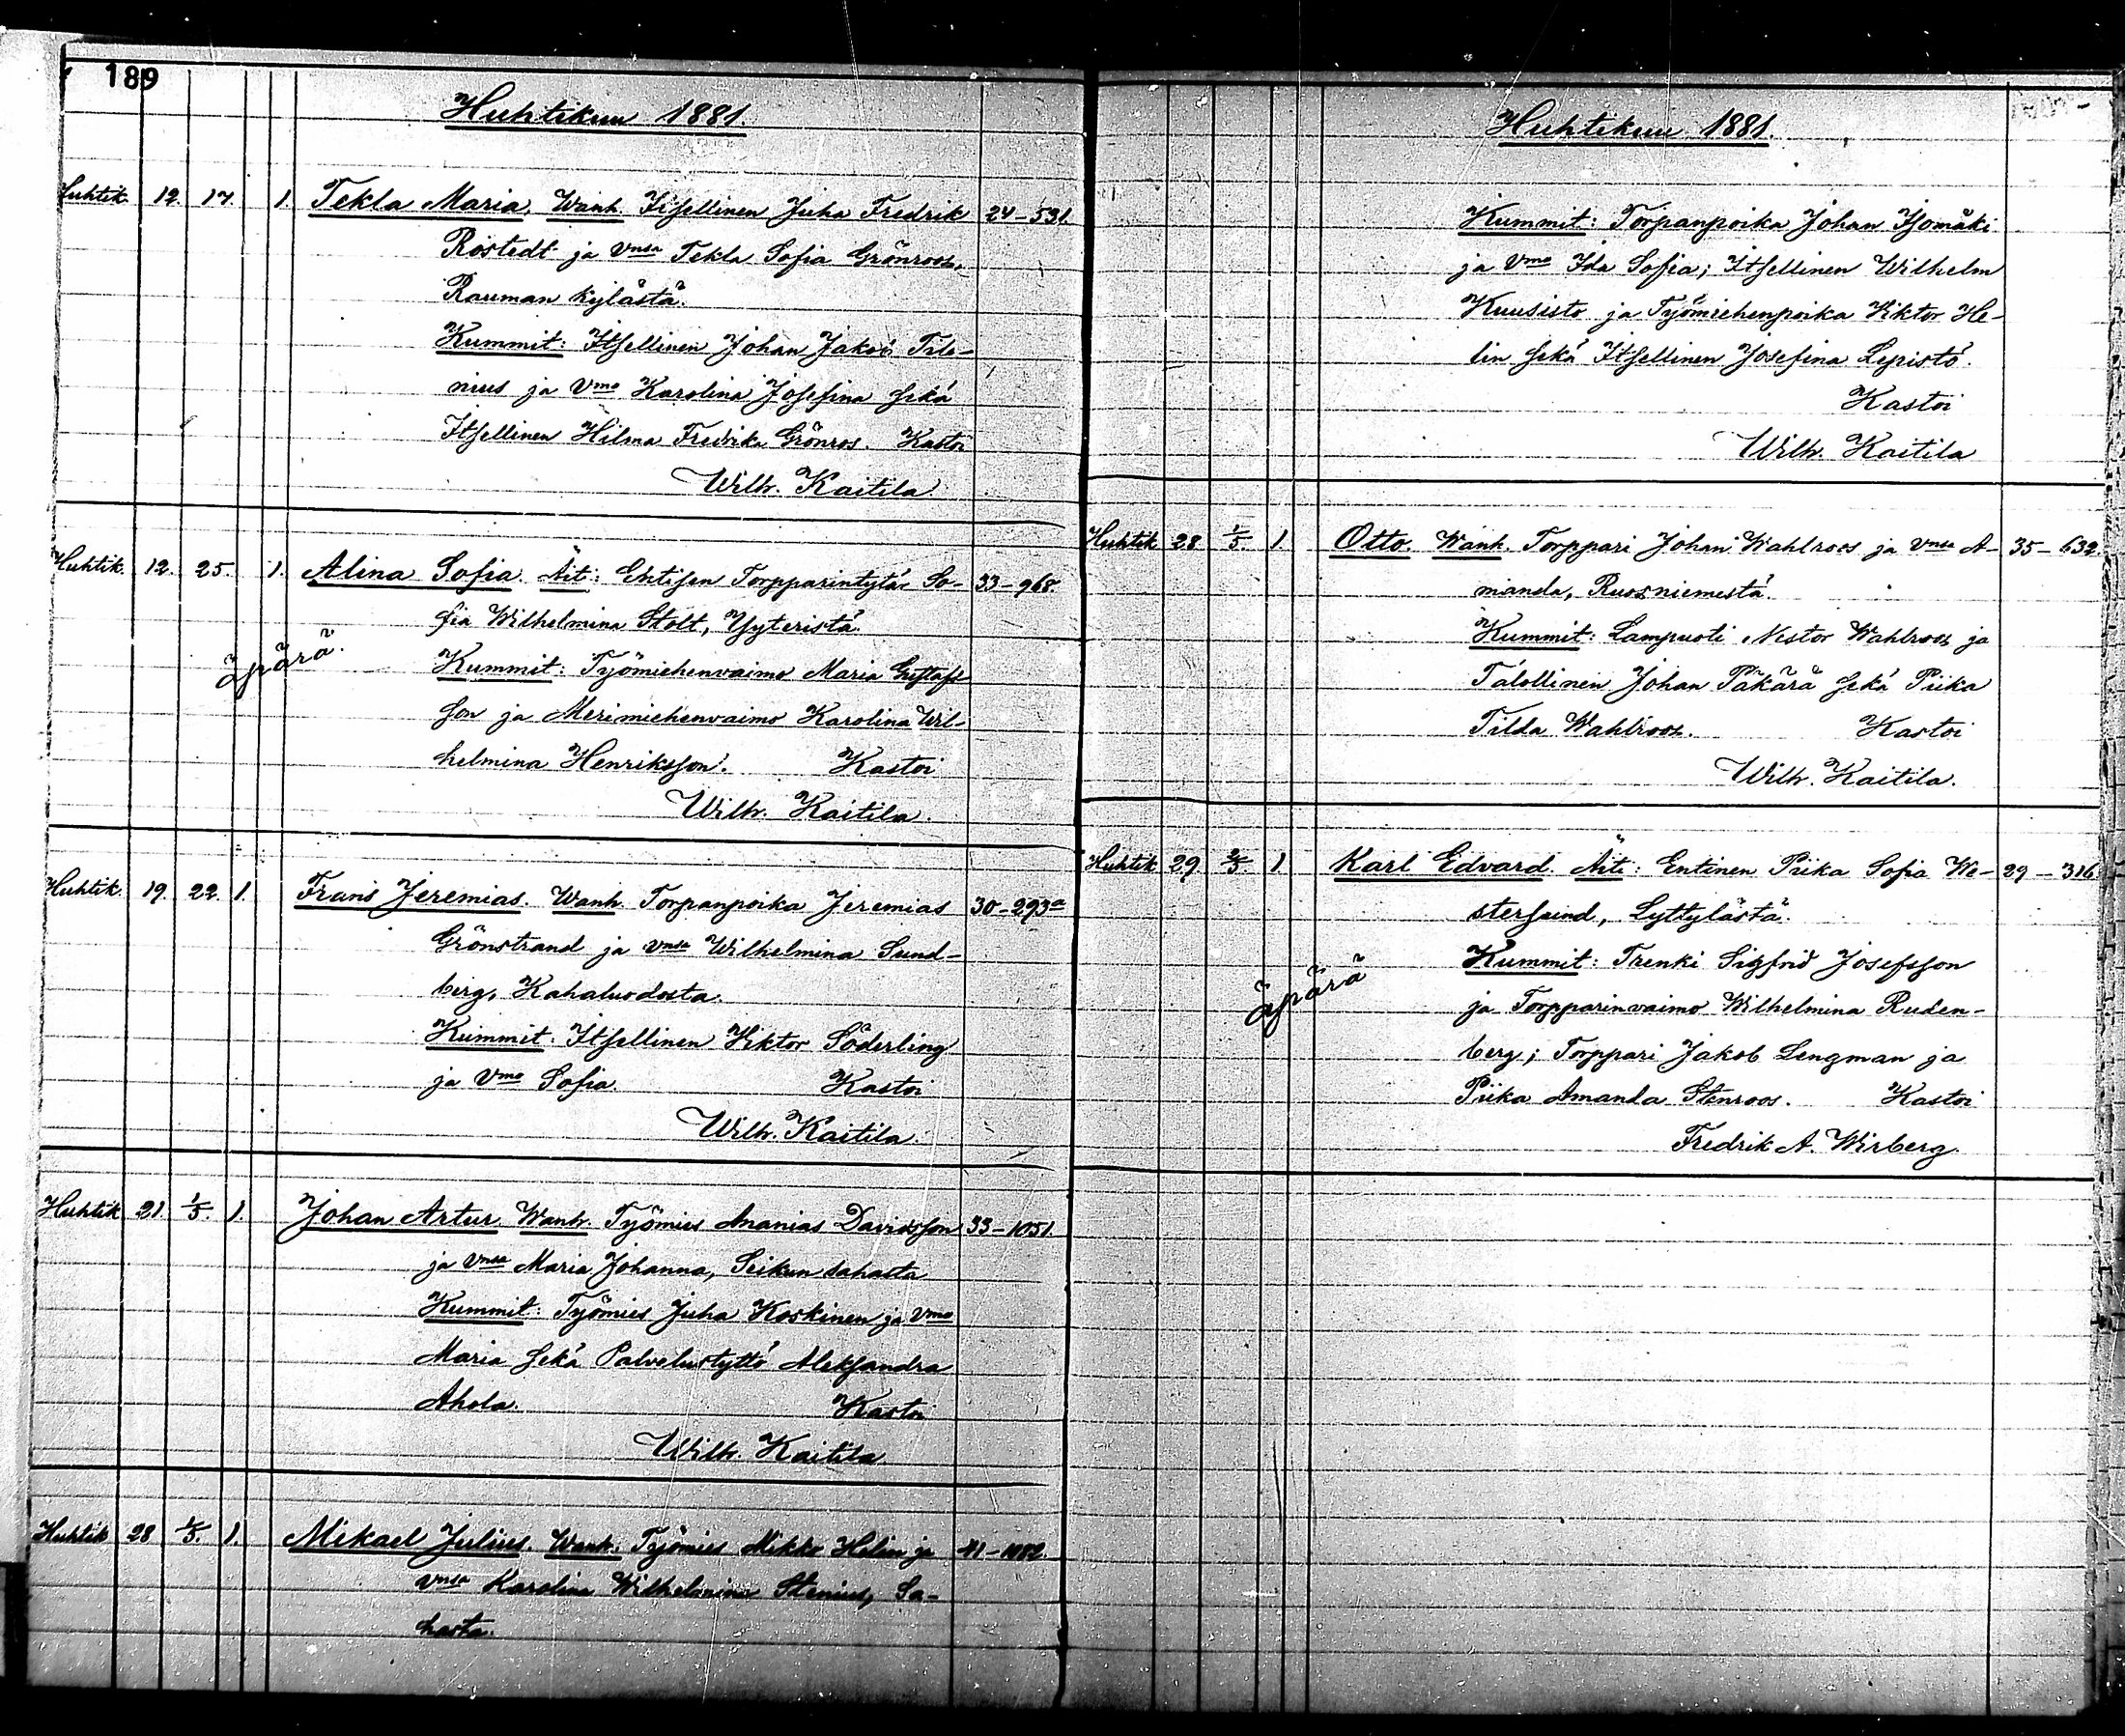 189
Huhtikuu 1881.
Huhtik. 12. 17. 1. Tekla Maria. Wanh. Itsellinen Juha Fredrik 24-531.
Rostedt ja Vnsa Tekla Sofia Grönroos,
Rauman kylästä.
Kummit: Itsellinen Johan Jakob Tile-
nius ja Vmo Karolina Josefina sekä
Itsellinen Hilma Fredrika Grönros. Kastoi
Wilh. Kaitila
Huhtik. 12. 25. 1. Alina Sofia. Äiti: Entisen Torpparintytär So- 33-968.
fia Wilhelmina Stolt, Yyteristä.
äpärä.
Kummit: Työmiehenvaimo Maria Gustafs-
son ja Merimiehenvaimo Karolina Wil-
helmina Henriksson. Kastoi
Wilh. Kaitila.
Huhtik. 19. 22. 1. Frans Jeremias. Wanh. Torpanpoika Jeremias 30-293a
Grönstrand ja vnsa Wilhelmina Sund-
berg, Kahaluodosta.
Kummit: Itsellinen Wiktor Söderling
ja Vmo Sofia. Kastoi
Wilh. Kaitila.
Huhtik. 21. 1/5. 1. Johan Artur. Wanh. Työmies Ananias Davidsson 33-1051.
ja vnsa Maria Johanna, Seikun sahasta
Kummit: Työmies Juha Koskinen ja Vmo
Maria sekä Palvelustyttö Aleksandra
Ahola. Kastoi
Wilh. Kaitila
Huhtik 28 1/5. 1. Mikael Julius. Wanh. Työmies Mikko Helin ja 41-1082.
vnsa Karolina Wilhelmina Stenius, Sa-
hasta.
Huhtikuu 1881.
Kummit: Torpanpoika Johan Isomäki
ja Vmo Ida Sofia; Itsellinen Wilhelm
Kuusisto ja Työmiehenpoika Wiktor He-
lin sekä Itsellinen Josefina Lepistö.
Kastoi
Wilh. Kaitila
Huhtik 28 1/5. 1. Otto. Wanh. Torppari Johan Wahlroos ja vnsa A- 35-632.
manda, Ruosniemestä.
Kummit: Lampuoti Nestor Wahlroos ja
Talollinen Johan Päkärä sekä Piika
Tilda Wahlroos. Kastoi
Wilh. Kaitila.
Huhtik 29. 2/5. 1 Karl Edvard. Äiti: Entinen Piika Sofia We- 29-316.
stersund, Lyttylästä.
äpärä
Kummit: Trenki Sigfrid Josefsson
ja Torpparinvaimo Wilhelmina Ruden-
berg; Torppari Jakob Lengman ja
Piika Amanda Stenroos. Kastoi
Fredrik A. Wirberg.